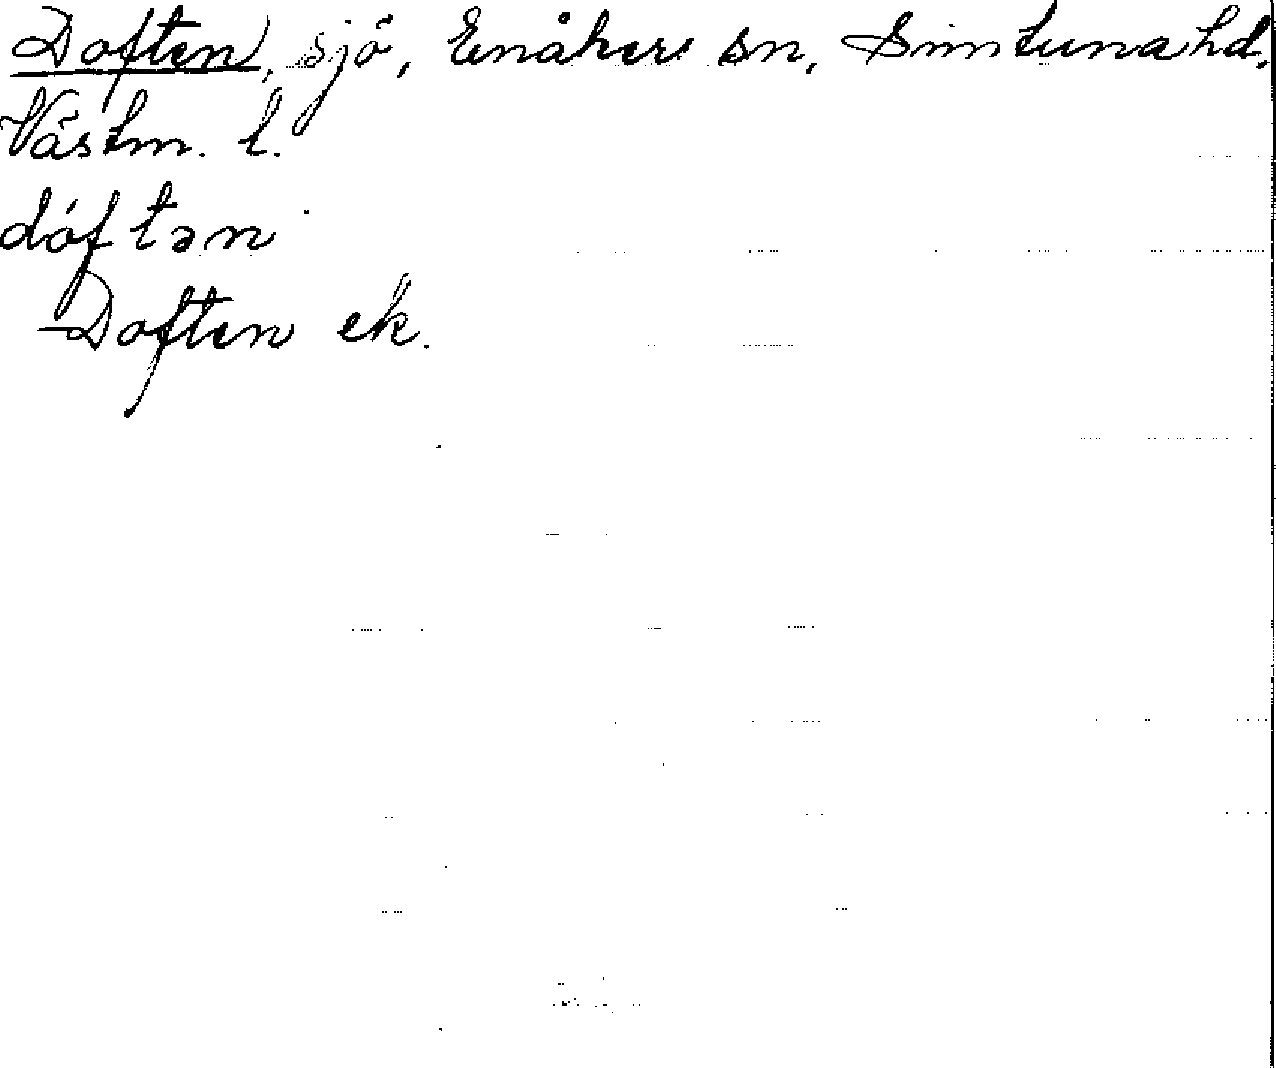 Doften, sjö, Enåker sn, Simtuna hd,
Västm. l.
dóftən
Doften ek.